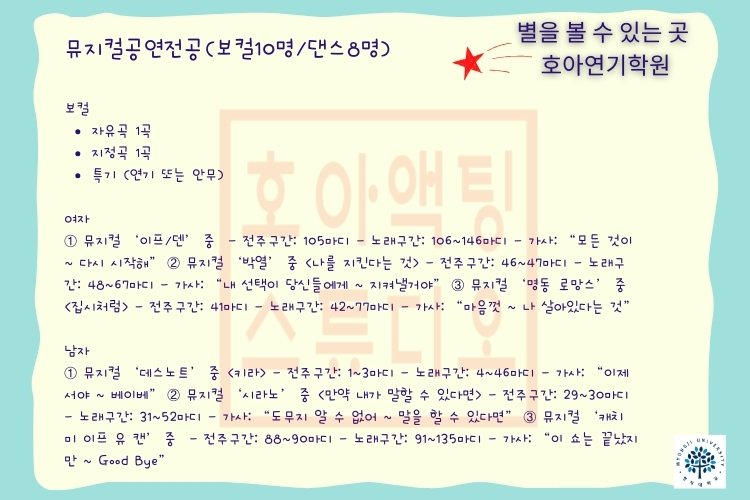 별을 볼 수 있는 곳
호아연기학원
뮤지컬공연전공(보컬10명/댄스8명)
보컬
• 자유곡 1곡
• 지정곡 1곡
• 특기 (연기 또는 안무)
여자
① 뮤지컬 ‘이프/덴’ 중 - 전주구간: 105마디 - 노래구간: 106~146마디 - 가사: “모든 것이
~ 다시 시작해” ② 뮤지컬 ‘박열’ 중 <나를 지킨다는 것> - 전주구간: 46~47마디 - 노래구
간: 48~67마디 - 가사: “내 선택이 당신들에게 ~ 지켜낼거야” ③ 뮤지컬 ‘명동 로망스’ 중
<집시처럼> - 전주구간: 41마디 - 노래구간: 42~77마디 - 가사: “마음껏 ~ 나 살아있다는 것”
남자
① 뮤지컬 ‘데스노트’ 중 <키라> - 전주구간: 1~3마디 - 노래구간: 4~46마디 - 가사: “이제
서야 ~ 베이베” ② 뮤지컬 ‘시라노’ 중 <만약 내가 말할 수 있다면> - 전주구간: 29~30마디
- 노래구간: 31~52마디 - 가사: “도무지 알 수 없어 ~ 말을 할 수 있다면” ③ 뮤지컬 ‘캐치
미 이프 유 캔’ 중 - 전주구간: 88~90마디 - 노래구간: 91~135마디 - 가사: “이 쇼는 끝났지
만 ~ Good Bye”
호아액팅
스튜디오
MYONGJI UNIVERSITY
명지대학교